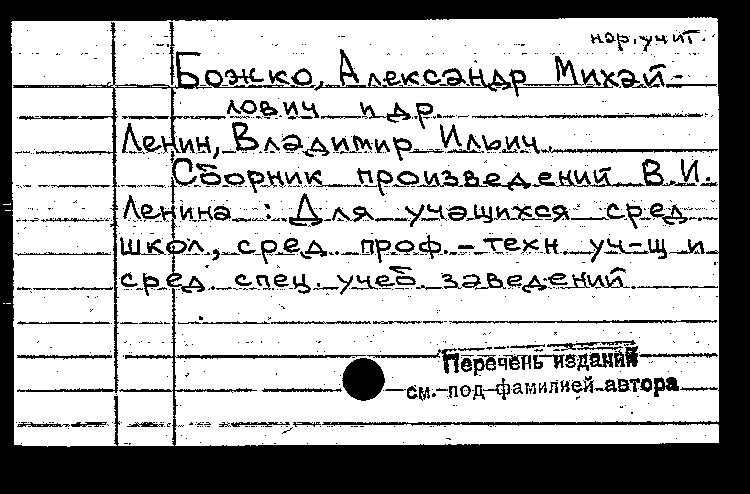 нар. учит.
Божко, Александр Михай-
лович и др.
Ленин, Владимир Ильич.
Сборник произведений В.И.
Ленина : Для учащихся сред.
школ, сред. проф.-техн. уч-щ и
сред. спец. учеб. заведений.
Перечень изданий
см. под фамилией автора